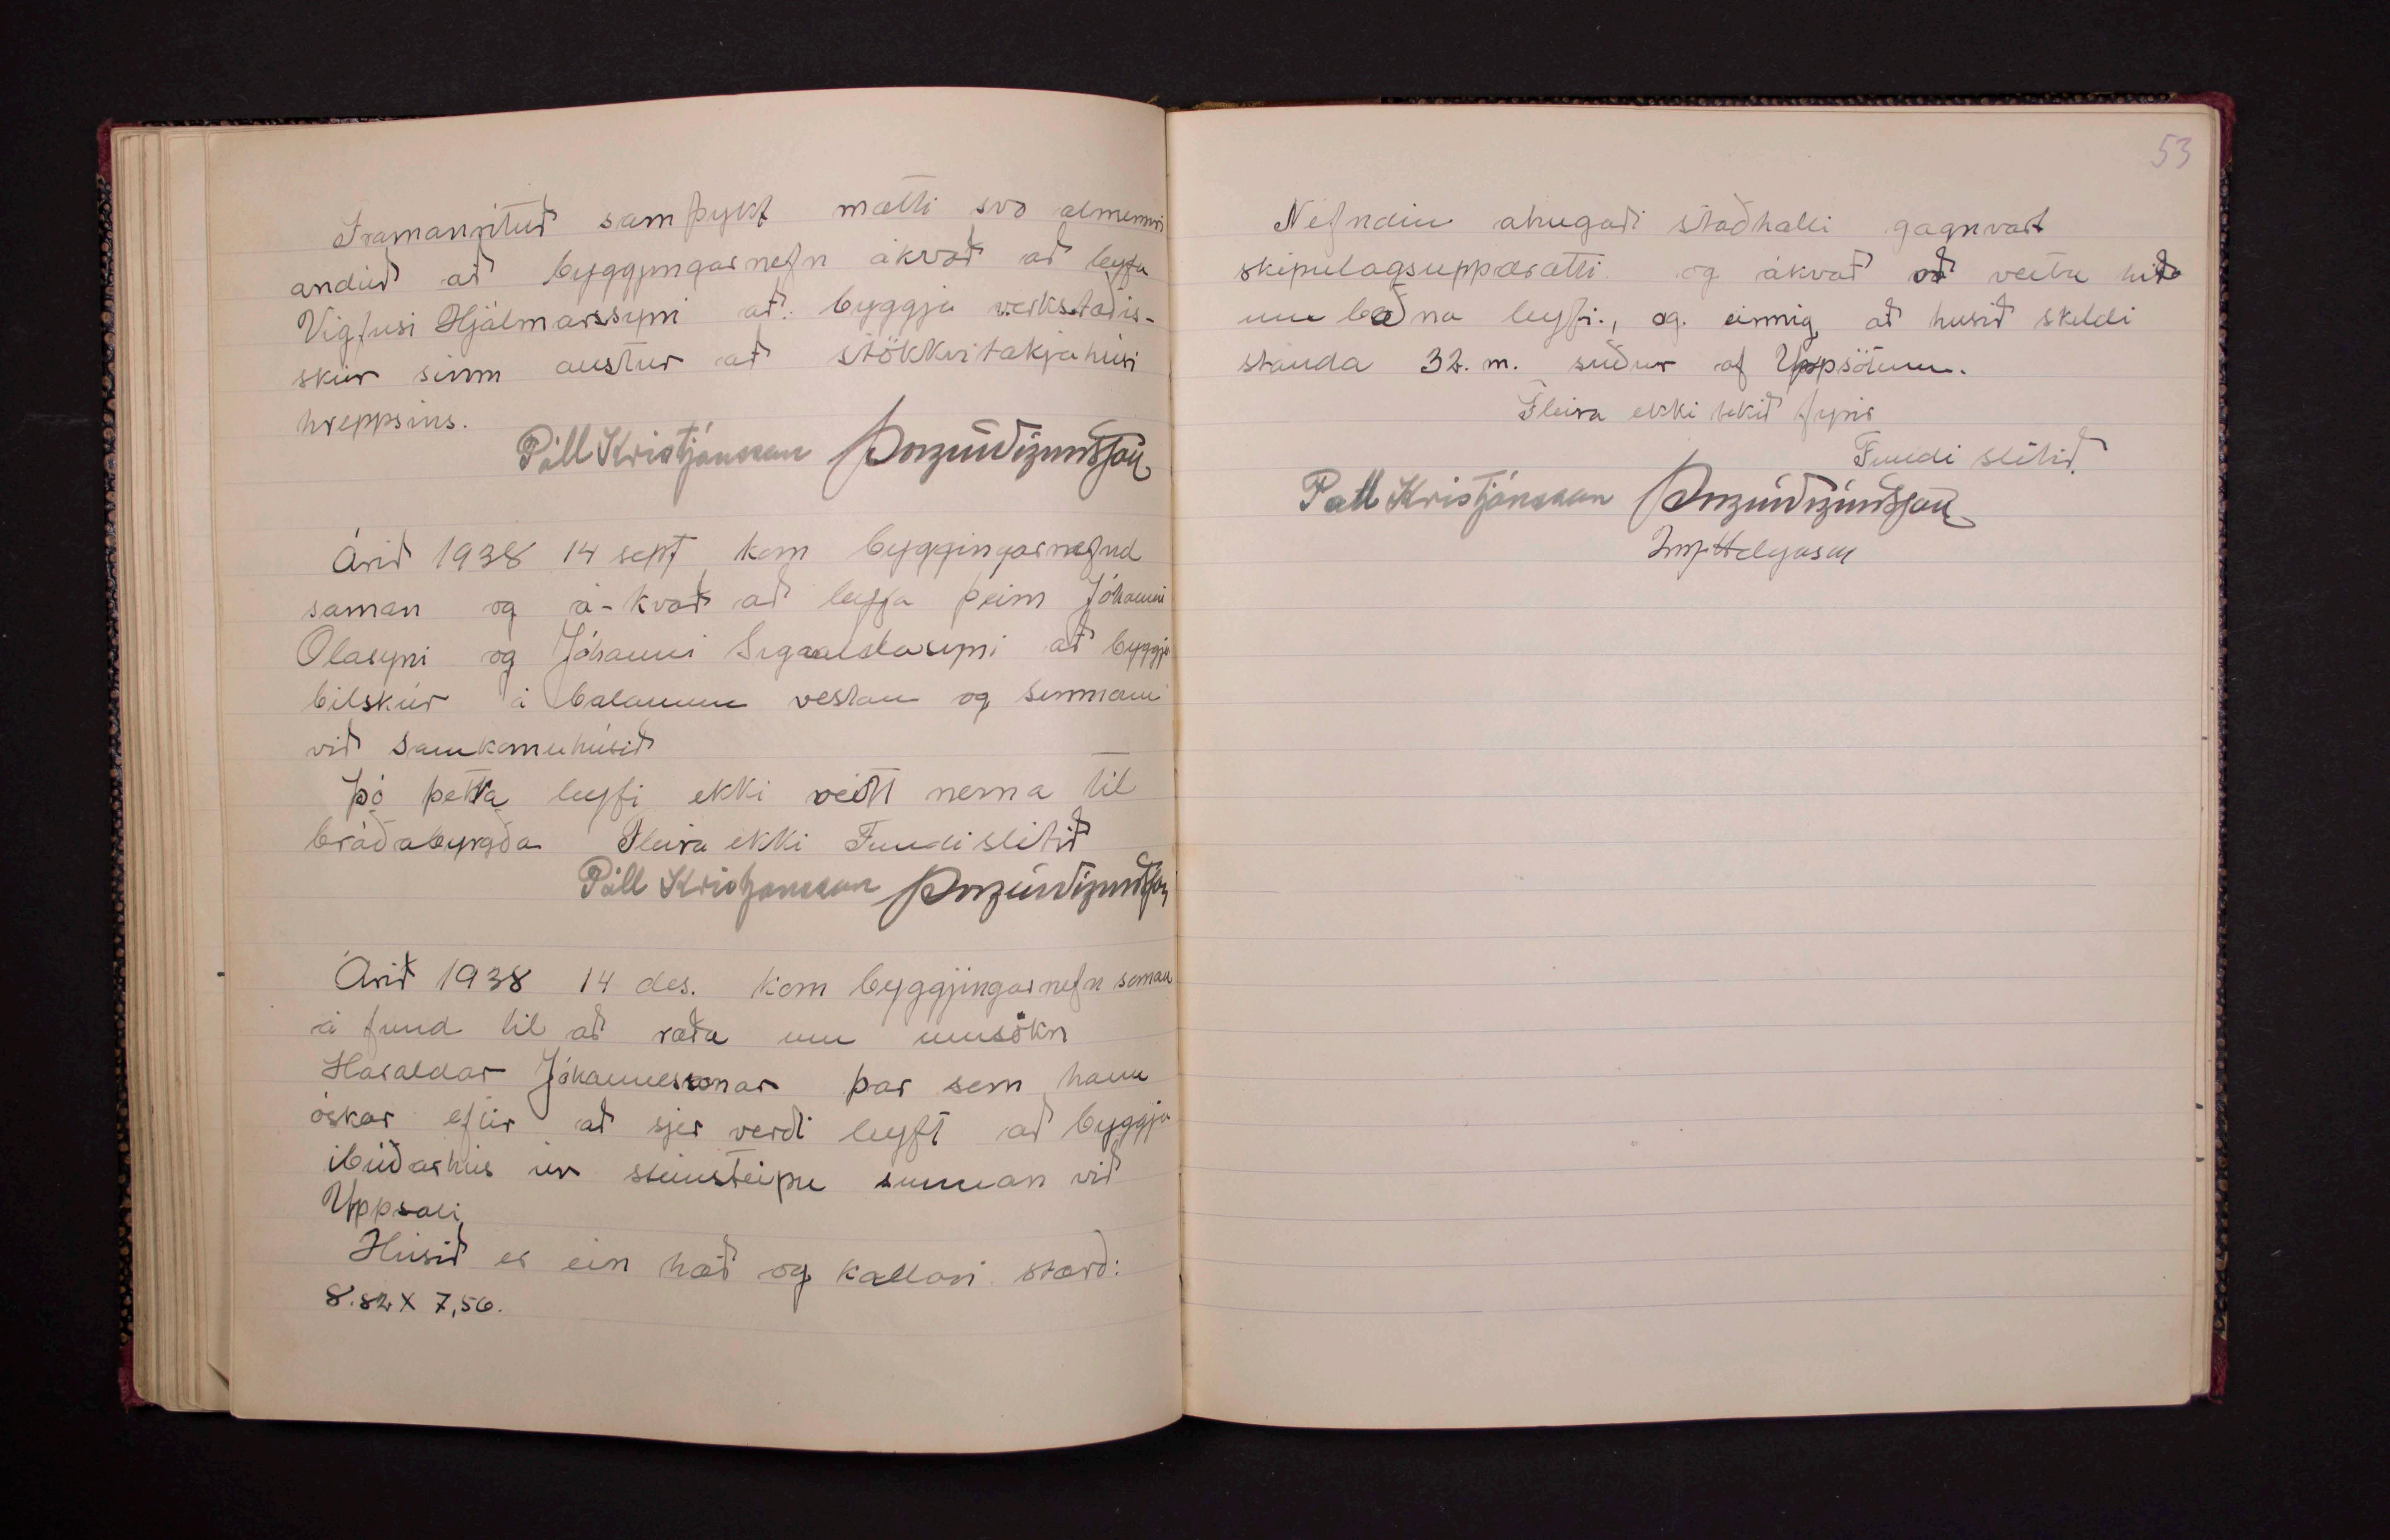 Framanritud samþykt mætti svo almennri
andúd að bygggingarnefn ákvað að leyfa
Vigfusi Hjálmarssyni að byggja verkstadis-
skúr sinn austur að stökkvitækjahúsi
hreppsins.
Páll Kristjánsson
Árið 1938 14 sept kom byggingarnefnd
saman og á-kvað að leyfa þeim Jóhanni
Olasyni og Jóhanni Sigvaldasyni að byggja
bilskúr á balanum vestan og sunnan
við Samkomuhúsið
Þó þetta leyfi ekki veitt nema til
bráðabyrgða Fleira ekki Fundi slitið
Páll Kristjánsson
Árið 1938 14 des. kom byggjingarnefn saman
á fund til að ræða um umsókn
Haraldar Jóhannessonar þar sem hann
óskar eftir að sjer verði leyft að byggja
íbúðarhús úr steinsteipu sunnan við
Uppsali,
Húsið er ein hæð og kallari stærd:
8.82 X 7,56.
53
Nefndin ahugaði staðhætti gagnvart
skipulagsuppdrætti og ákvað að veita hið
um beðna leyfi., og einnig að husið skildi
standa 32. m. suður af Uppsölum.
Fleira ekki tekið fyrir
Fundi slitið.
Pall Kristjánsson
Helgason